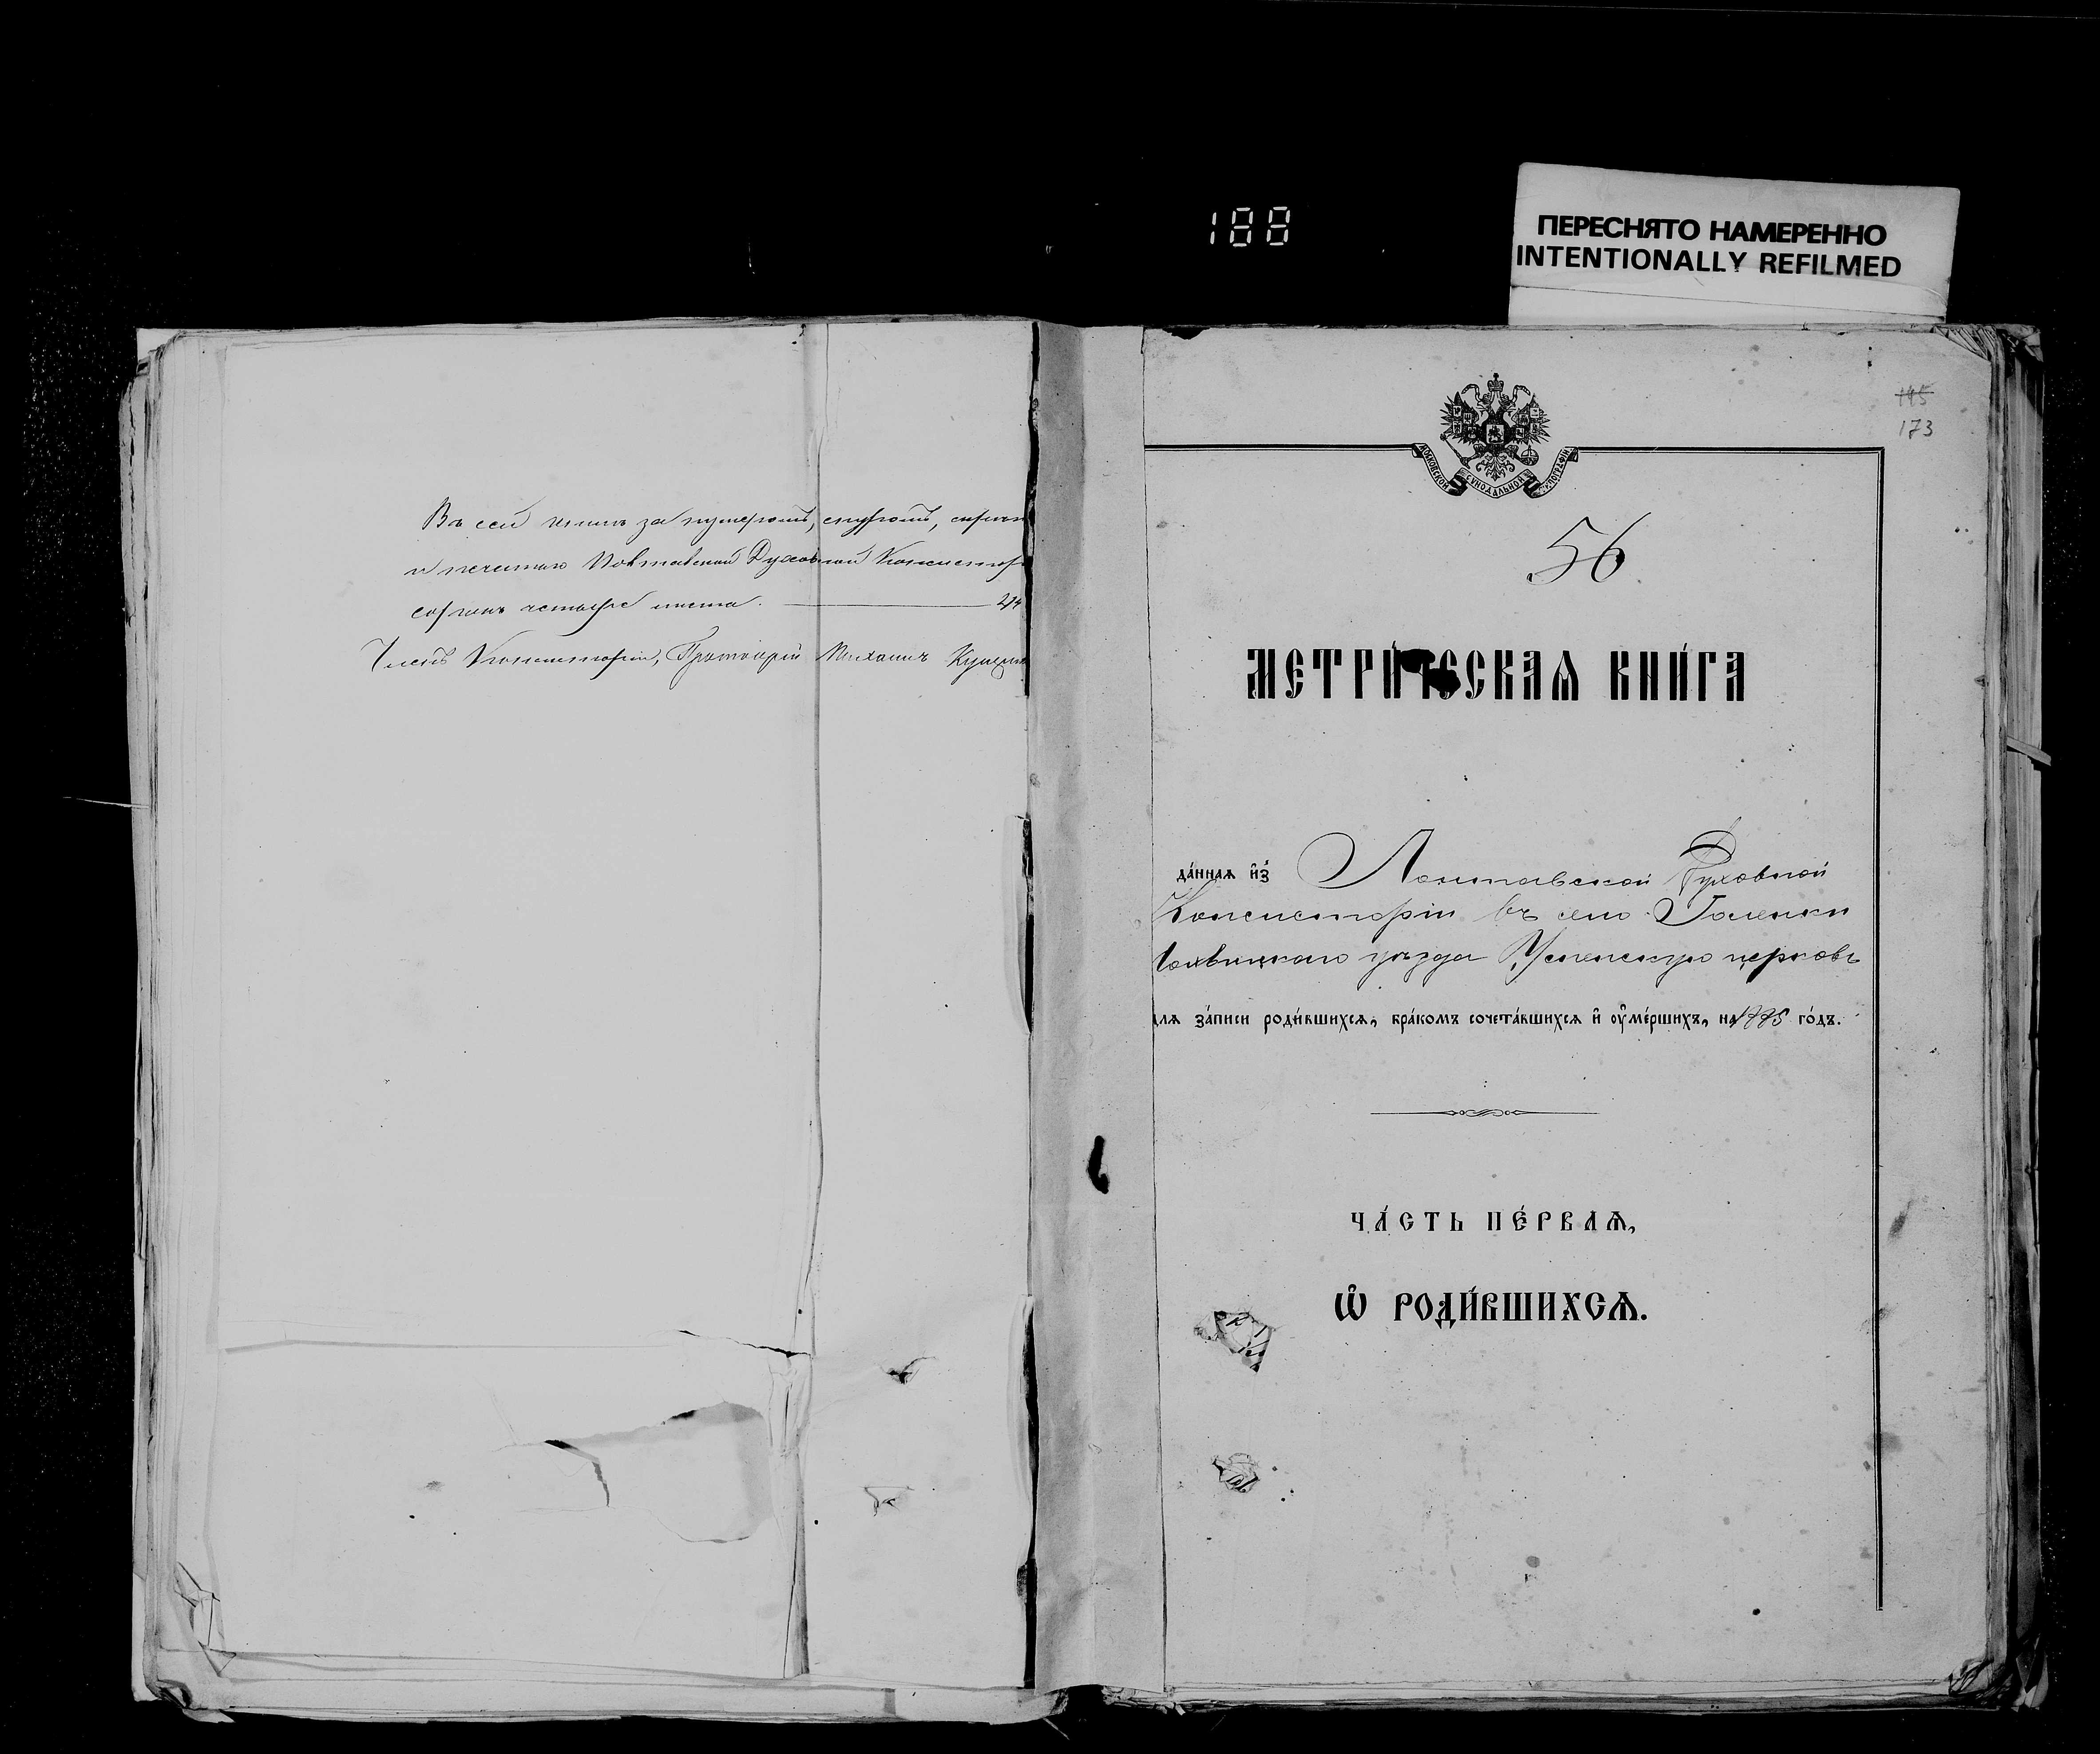 188
ПЕРЕСНЯТО НАМЕРЕННО
INTENTIONALLY REFILMED
Въ сей книгѣ за нумеромъ, шнуромъ, скрѣп
и печатью Полтавской Духовной Консистор
сорокъ четыре листа.
Членъ Консисторіи, Протоіерей Михаилъ
145
173
МОСКОВСКОЙ СѴНОДАЛЬНОЙ ТИПОГРАФІИ
56
МЕТРИ́ЧЕСКАѦ КНИ́ГА
да́ннаѧ и҆з̾ Полтавской Духовной
Консисторіи въ село Голенки
Лохвицкаго уѣзда Успенскую церковь
для за́писи роди́вшихсѧ, бра́комъ сочета́вшихсѧ и҆ оу҆ме́ршихъ, на 1885 го́дъ.
ЧА́СТЬ ПЕ́РВАѦ,
Ѽ РОДИ́ВШИХСѦ.